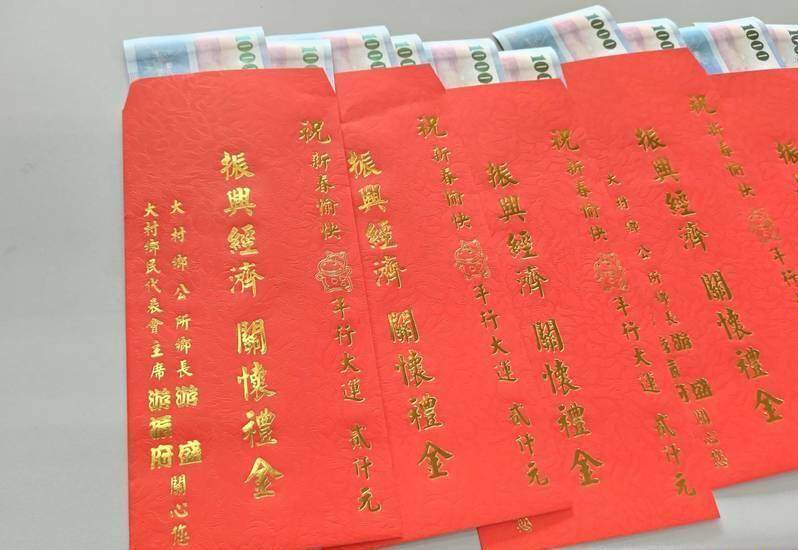 1000
1000
1000
1000
1000
1000
祝 新春愉快 行大運 貳仟元
振興經濟 關懷禮金
大村鄉公所鄉長 游 盛 關心您
大村鄉民代表會主席 游
祝 新春愉快 行大運 貳仟元
振興經濟 關懷禮金
祝 新春愉快 行大運 貳仟元
振興經濟 關懷禮金
您
祝 新春愉快
振興經濟 關懷禮金
大村鄉公所鄉長 游 盛 關心您